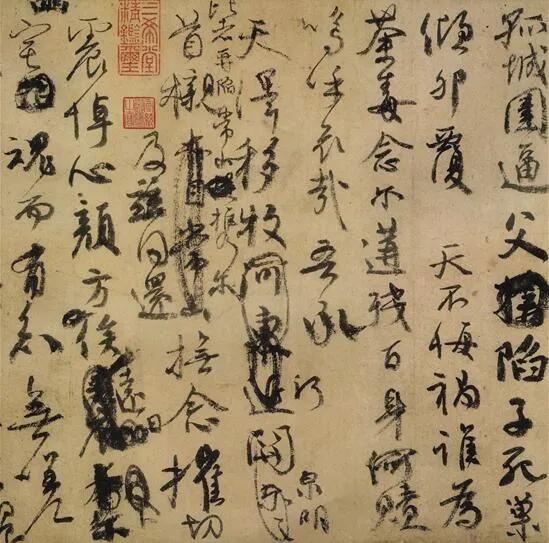 孤城圍逼父陷子死巢
傾卵覆天不悔禍誰為
荼毒念爾遘殘百身何贖
嗚乎哀哉吾承
泉明
天澤移牧河東近河關
比者再陷常山攜爾
首櫬撫念摧切
及茲同還
震悼心顏方俟遠日
宅魂而有知無嗟
三希堂
精鑑璽